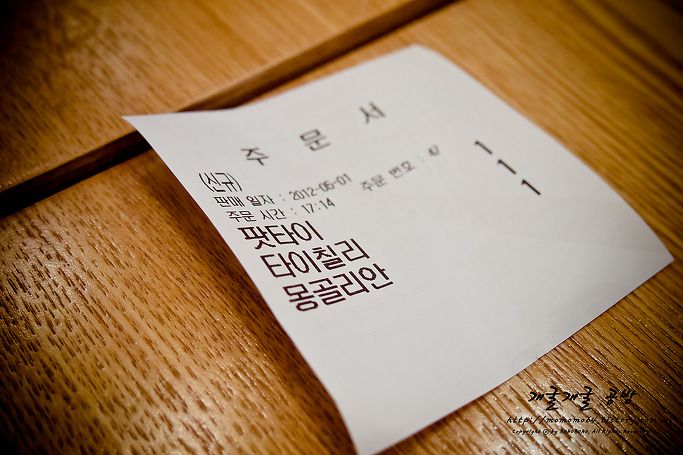 주 문 서
(신규)
판매 일자 : 2012-06-01 주문 번호 : 47
주문 시간 : 17:14
팟타이 1
타이칠리 1
몽골리안 1
개굴개굴 공방